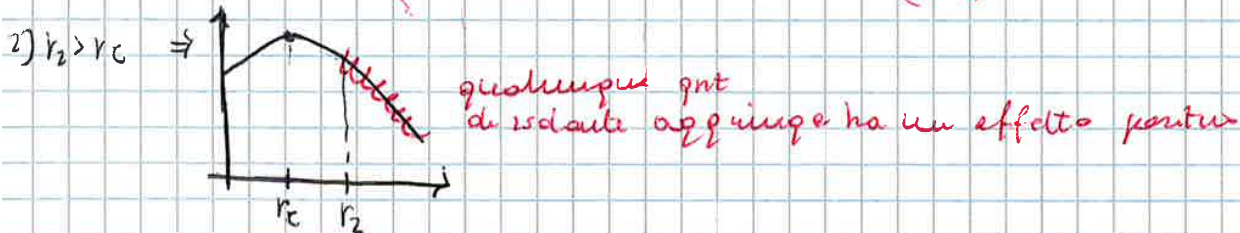 2) r₂ > rc ⇒
qualunque qnt
di isolante aggiungo ha un effetto positivo
rc r₂